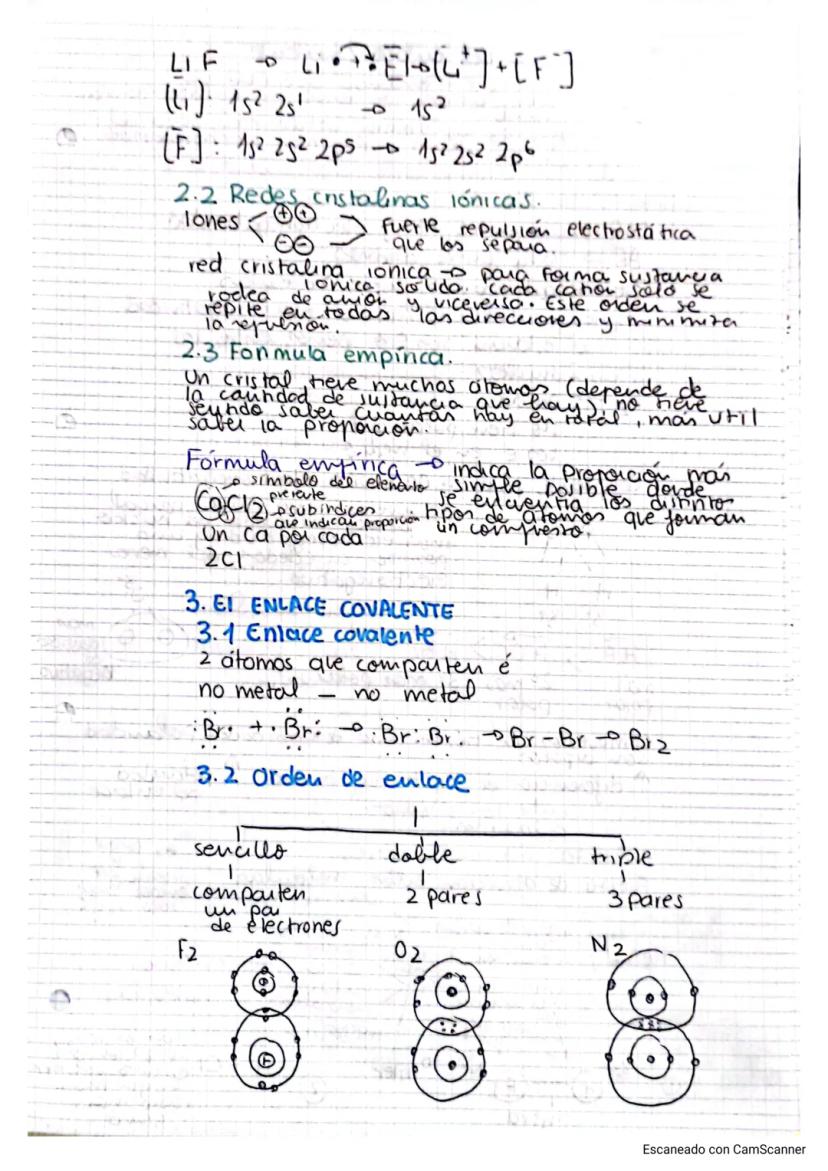 Li F → Li • → F → [Li⁺] + [F⁻]
[Li]: 1s² 2s¹ → 1s²
[F]: 1s² 2s² 2p⁵ → 1s² 2s² 2p⁶
2.2 Redes cristalinas iónicas.
Iones < ⊕⊕ ⊖⊖ > fuerte repulsión electrostática
que los separa.
red cristalina iónica → para forma sustancia
iónica sólida. cada catión sólo se
rodea de anión y viceversa. Este orden se
repite en todas las direcciones y minimiza
la repulsión.
2.3 Formula empírica.
Un cristal tiene muchos átomos (depende de
la cantidad de sustancia que hay), no tiene
sentido saber cuantan hay en total, más util
saber la proporción.
Fórmula empírica → indica la proporción más
simple posible donde
se encuentra los distintos
tipos de átomos que forman
un compuesto.
símbolo del elemento
presente
CaCl2 → subíndices
que indican proporción
Un Ca por cada
2Cl
3. El ENLACE COVALENTE
3.1 Enlace covalente
2 átomos que comparten é
no metal – no metal
Br + Br → Br : Br → Br – Br → Br2
3.2 Orden de enlace
sencillo doble triple
comparten 2 pares 3 pares
un par
de electrones
F2 O2 N2
Escaneado con CamScanner